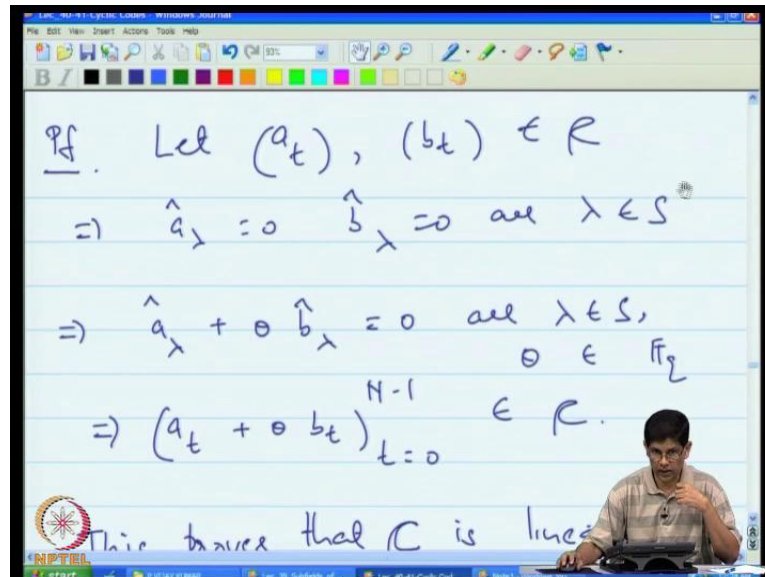 Lec_40-41-Cyclic Codes - Windows Journal
File Edit View Insert Actions Tools Help
93%
B I
Pf. Let (a_t), (b_t) ∈ C
⇒ â_λ = 0 b̂_λ = 0 all λ ∈ S
⇒ â_λ + θ b̂_λ = 0 all λ ∈ S,
θ ∈ F_q
⇒ (a_t + θ b_t)_{t=0}^{N-1} ∈ C.
This proves that C is
NPTEL
start